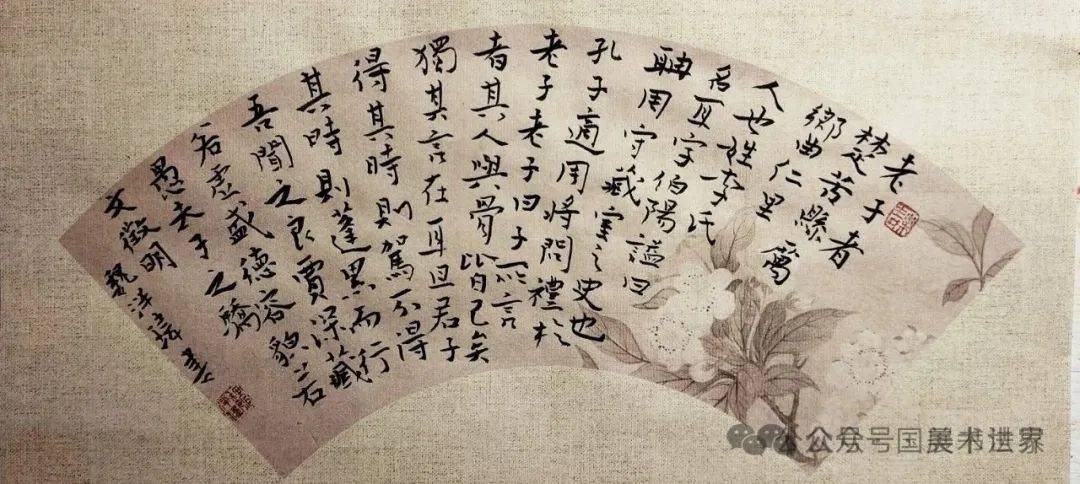 老子者
楚苦縣厲
鄉曲仁里
人也姓李氏
名耳字伯陽謚曰
聃周守藏室之史也
孔子適周將問禮於
老子老子曰子所言
者其人與骨皆已矣
獨其言在耳且君子
得其時則駕不得
其時則蓬累而行
吾聞之良賈深藏
若虛盛德容貌若
愚去子之驕
文徵明
公众号